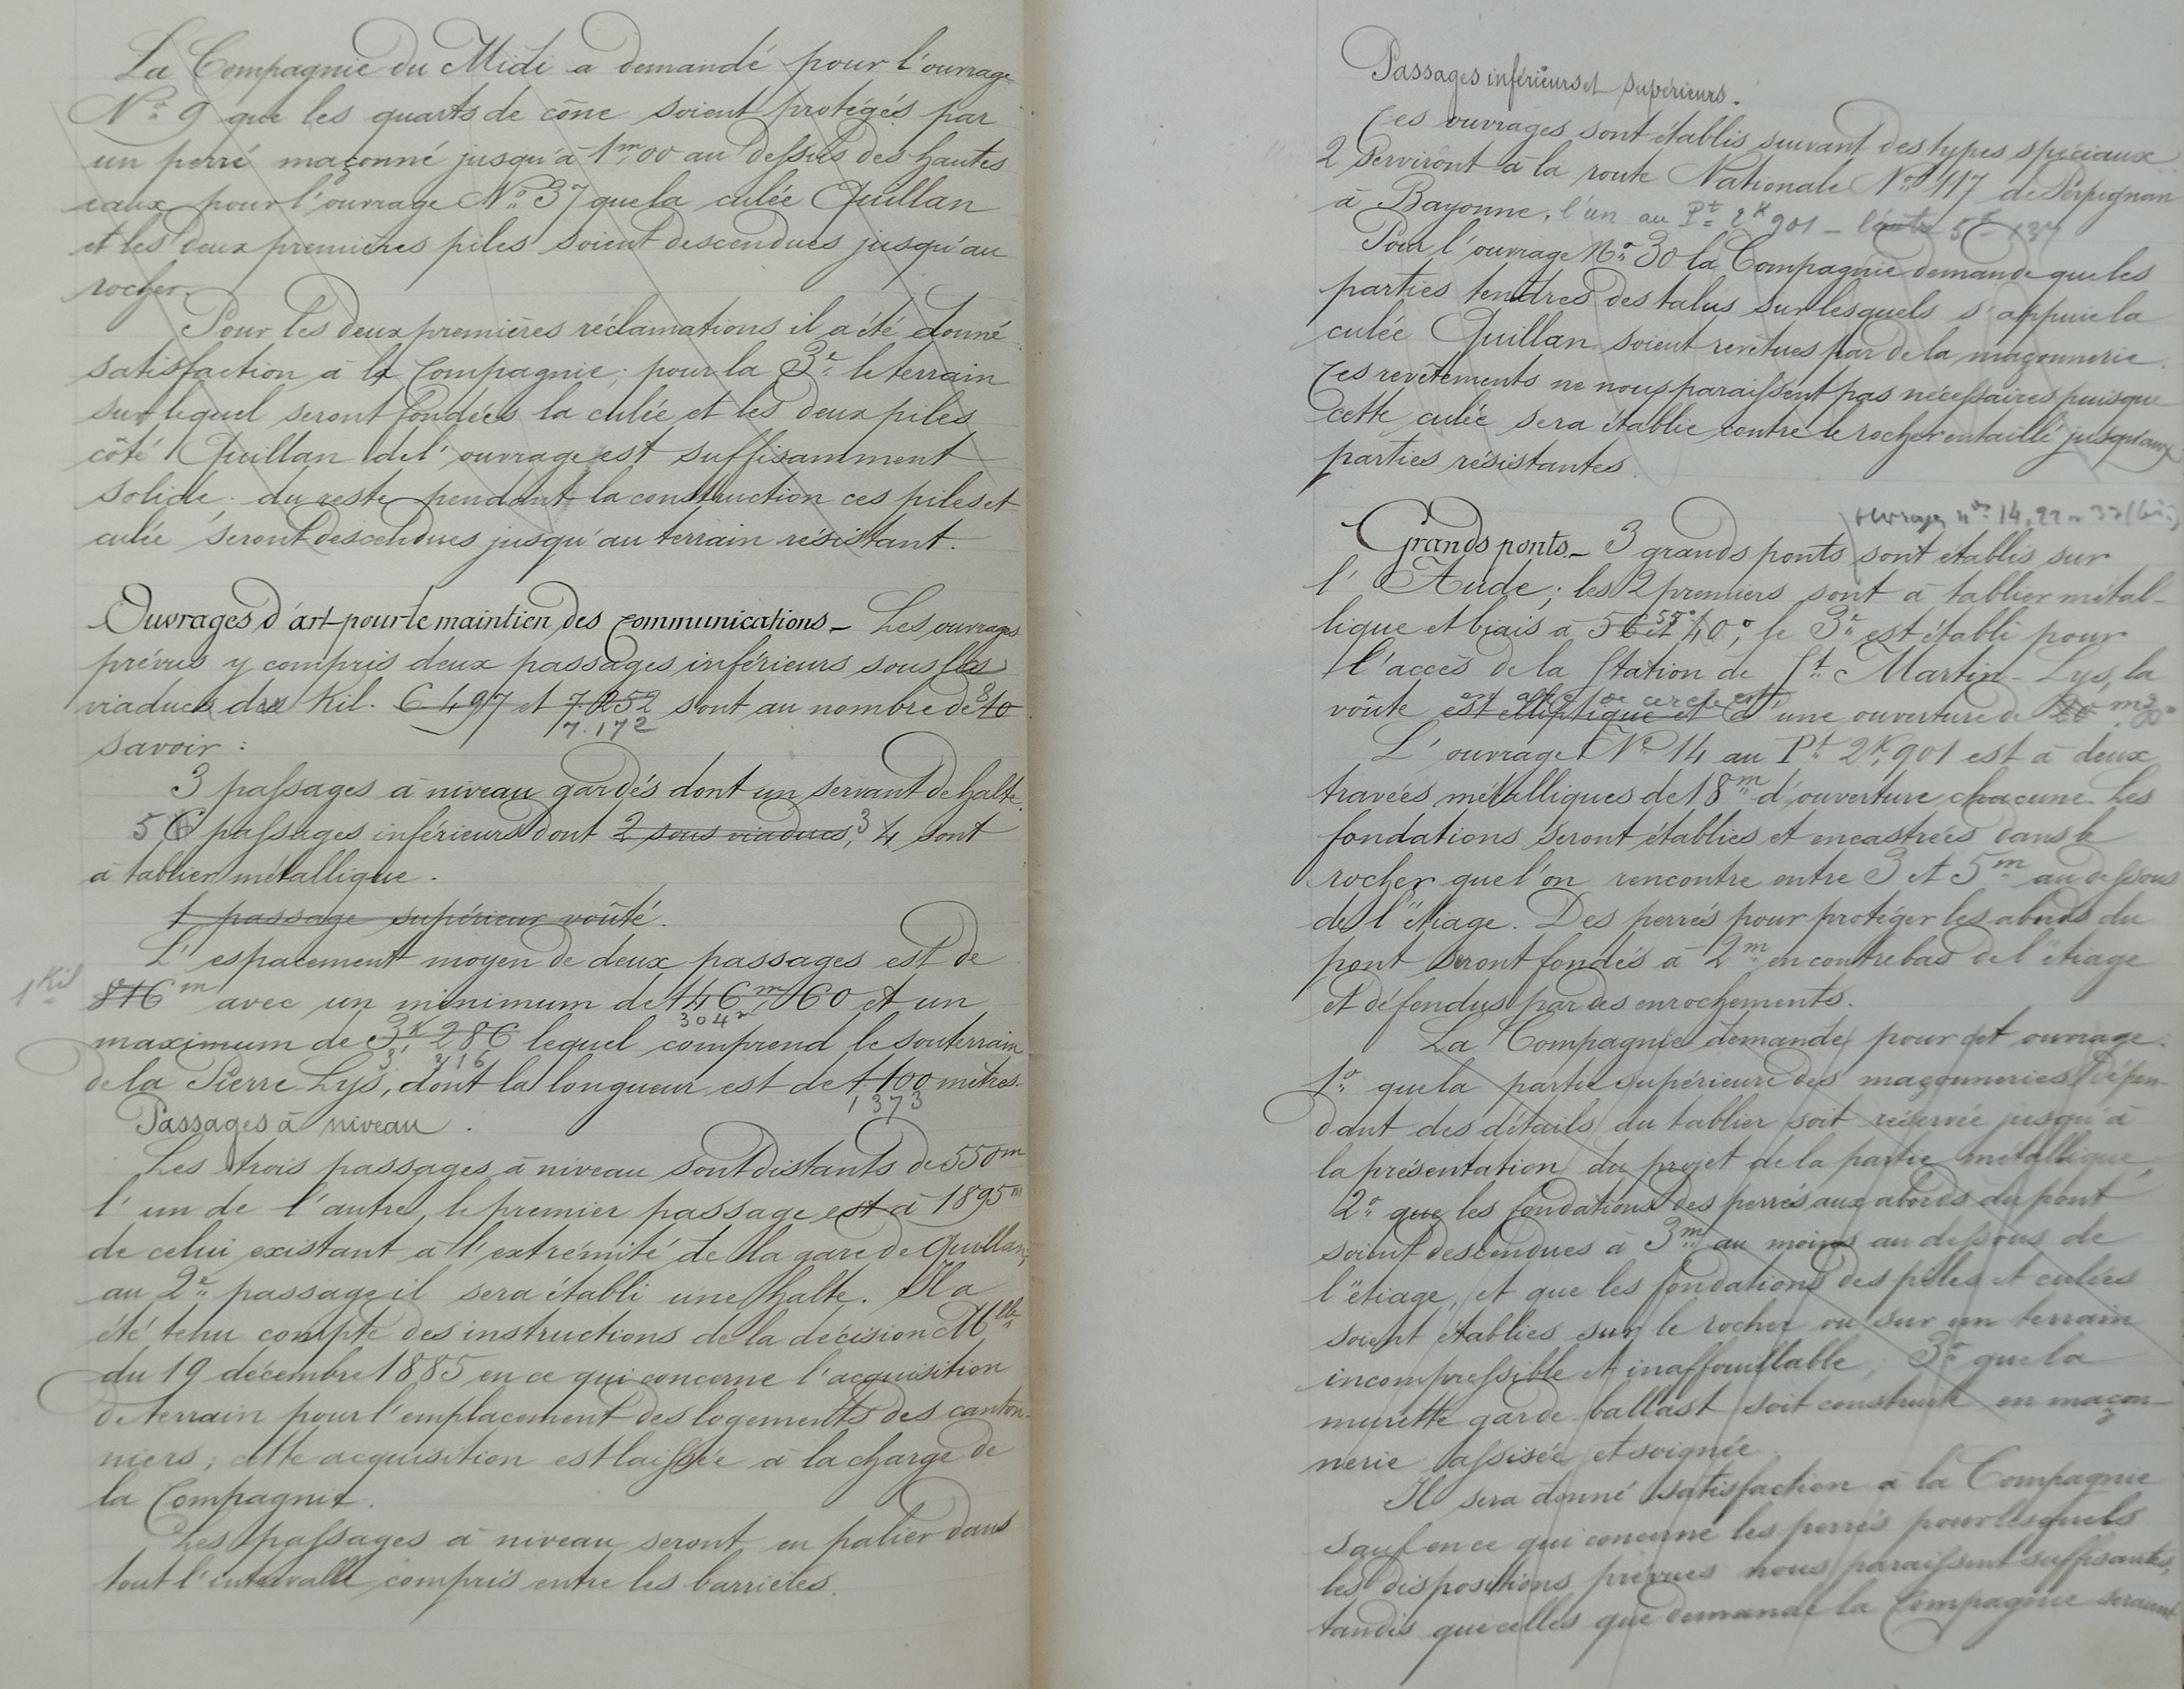 La Compagnie du Midi a demandé pour l'ouvrage
N° 9 que les quarts de cône soient protégés par
un perré maçonné jusqu'à 1m,00 au dessus des hautes
eaux pour l'ouvrage N° 37 que la culée Quillan
et les deux premières piles soient descendues jusqu'au
rocher.
Pour les deux premières réclamations il a été donné
satisfaction à la Compagnie; pour la 3e le terrain
sur lequel seront fondées la culée et les deux piles
côté Quillan de l'ouvrage est suffisamment
solide; du reste pendant la construction ces piles et
culée seront descendues jusqu'au terrain résistant.
Ouvrages d'art pour le maintien des communications _ Les ouvrages
prévus y compris deux passages inférieurs sous les
viaducs des Kil. 6 497 et 7.252 sont au nombre de 10 8
7.172
savoir :
3 passages à niveau gardés dont un servant de halte.
5 6 passages inférieurs dont 2 sous viaducs, 3 4 sont
à tablier métallique.
1 passage supérieur voûté.
L'espacement moyen de deux passages est de
1 Kil 816m avec un minimum de 146m,60 et un
304m
maximum de 3K,286 lequel comprend le souterrain
3, 316
de la Pierre Lys, dont la longueur est de 1100 mètres.
1373
Passages à niveau.
Les trois passages à niveau sont distants de 550m
l'un de l'autre, le premier passage est à 1895m
de celui existant à l'extrémité de la gare de Quillan,
au 2e passage il sera établi une halte. Il a
été tenu compte des instructions de la décision Mlle
du 19 décembre 1885 en ce qui concerne l'acquisition
de terrain pour l'emplacement des logements des canton-
niers; cette acquisition est laissée à la charge de
la Compagnie.
Les passages à niveau seront en palier dans
tout l'intervalle compris entre les barrières.
Passages inférieurs et supérieurs.
Ces ouvrages sont établis suivant des types spéciaux
2 serviront à la route Nationale N° 117 de Perpignan
à Bayonne, l'un au Pt 2K 901 _ l'autre 5K
Pour l'ouvrage N° 30 la Compagnie demande que les
parties tendres des talus sur lesquels s'appuie la
culée Quillan soient revêtues par de la maçonnerie.
Ces revêtements ne nous paraissent pas nécessaires puisque
cette culée sera établie contre le rocher entaillé jusqu'aux
parties résistantes.
ouvrages nos 14, 22 37 (bis)
Grands ponts _ 3 grands ponts sont établis sur
l'Aude; les 2 premiers sont à tablier métal-
lique et biais à 56 et 40°, 55° le 3e est établi pour
l'accès de la station de St Martin-Lys, la
en arc de cercle est
voûte est elliptique et d'une ouverture de 20 m
L'ouvrage N° 14 au Pt 2K,901 est à deux
travées métalliques de 18m d'ouverture chacune. Les
fondations seront établies et encastrées dans le
rocher que l'on rencontre entre 3 et 5m au dessous
de l'étiage. Des perrés pour protéger les abords du
pont seront fondés à 2m en contrebas de l'étiage
et défendus par des enrochements.
La Compagnie demande pour cet ouvrage:
1° que la partie supérieure des maçonneries dépen-
dant des détails du tablier soit réservée jusqu'à
la présentation du projet de la partie métallique,
2° que les fondations des perrés aux abords du pont
soient descendues à 3m au moins au dessous de
l'étiage, et que les fondations des piles et culées
soient établies sur le rocher ou sur un terrain
incompressible et inaffouillable, 3° que la
murette garde-ballast soit construite en maçon-
nerie assisée et soignée.
Il sera donné satisfaction à la Compagnie
sauf en ce qui concerne les perrés pour lesquels
les dispositions prévues nous paraissent suffisantes,
tandis que celles que demande la Compagnie seraient